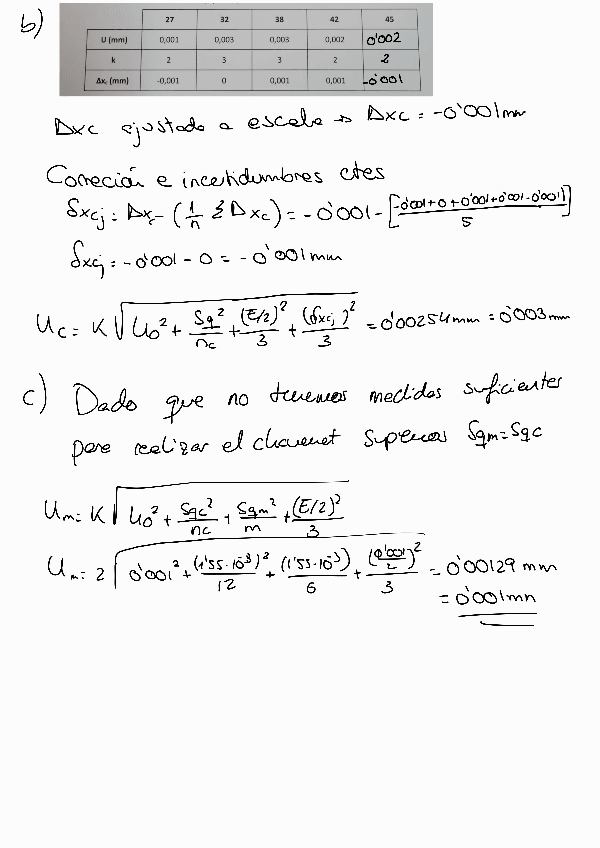 b)
27 32 38 42 45
U (mm) 0,001 0,003 0,003 0,002 0'002
k 2 3 3 2 2
Δxc (mm) -0,001 0 0,001 0,001 -0'001
Δxc ajustado a escala → Δxc = -0'001mm
Corrección e incertidumbres ctes
δxcj = Δxc - (1/n Σ Δxc) = -0'001 - [-0'001+0+0'001+0'001-0'001)]/5
δxcj = -0'001 - 0 = -0'001mm
Uc = K √(u0² + Sq²/nc + (E/2)²/3 + (δxcj)²/3) = 0'00254mm = 0'003mm
c) Dado que no tenemos medidas suficientes
para realizar el chauvenet supenos Sqm=Sqc
Um = K √(u0² + Sqc²/nc + Sqm²/m + (E/2)²/3)
Um = 2 √(0'001² + (1'55·10⁻³)²/12 + (1'55·10⁻³)/6 + (0'001/2)²/3) = 0'00129 mm
= 0'001mm